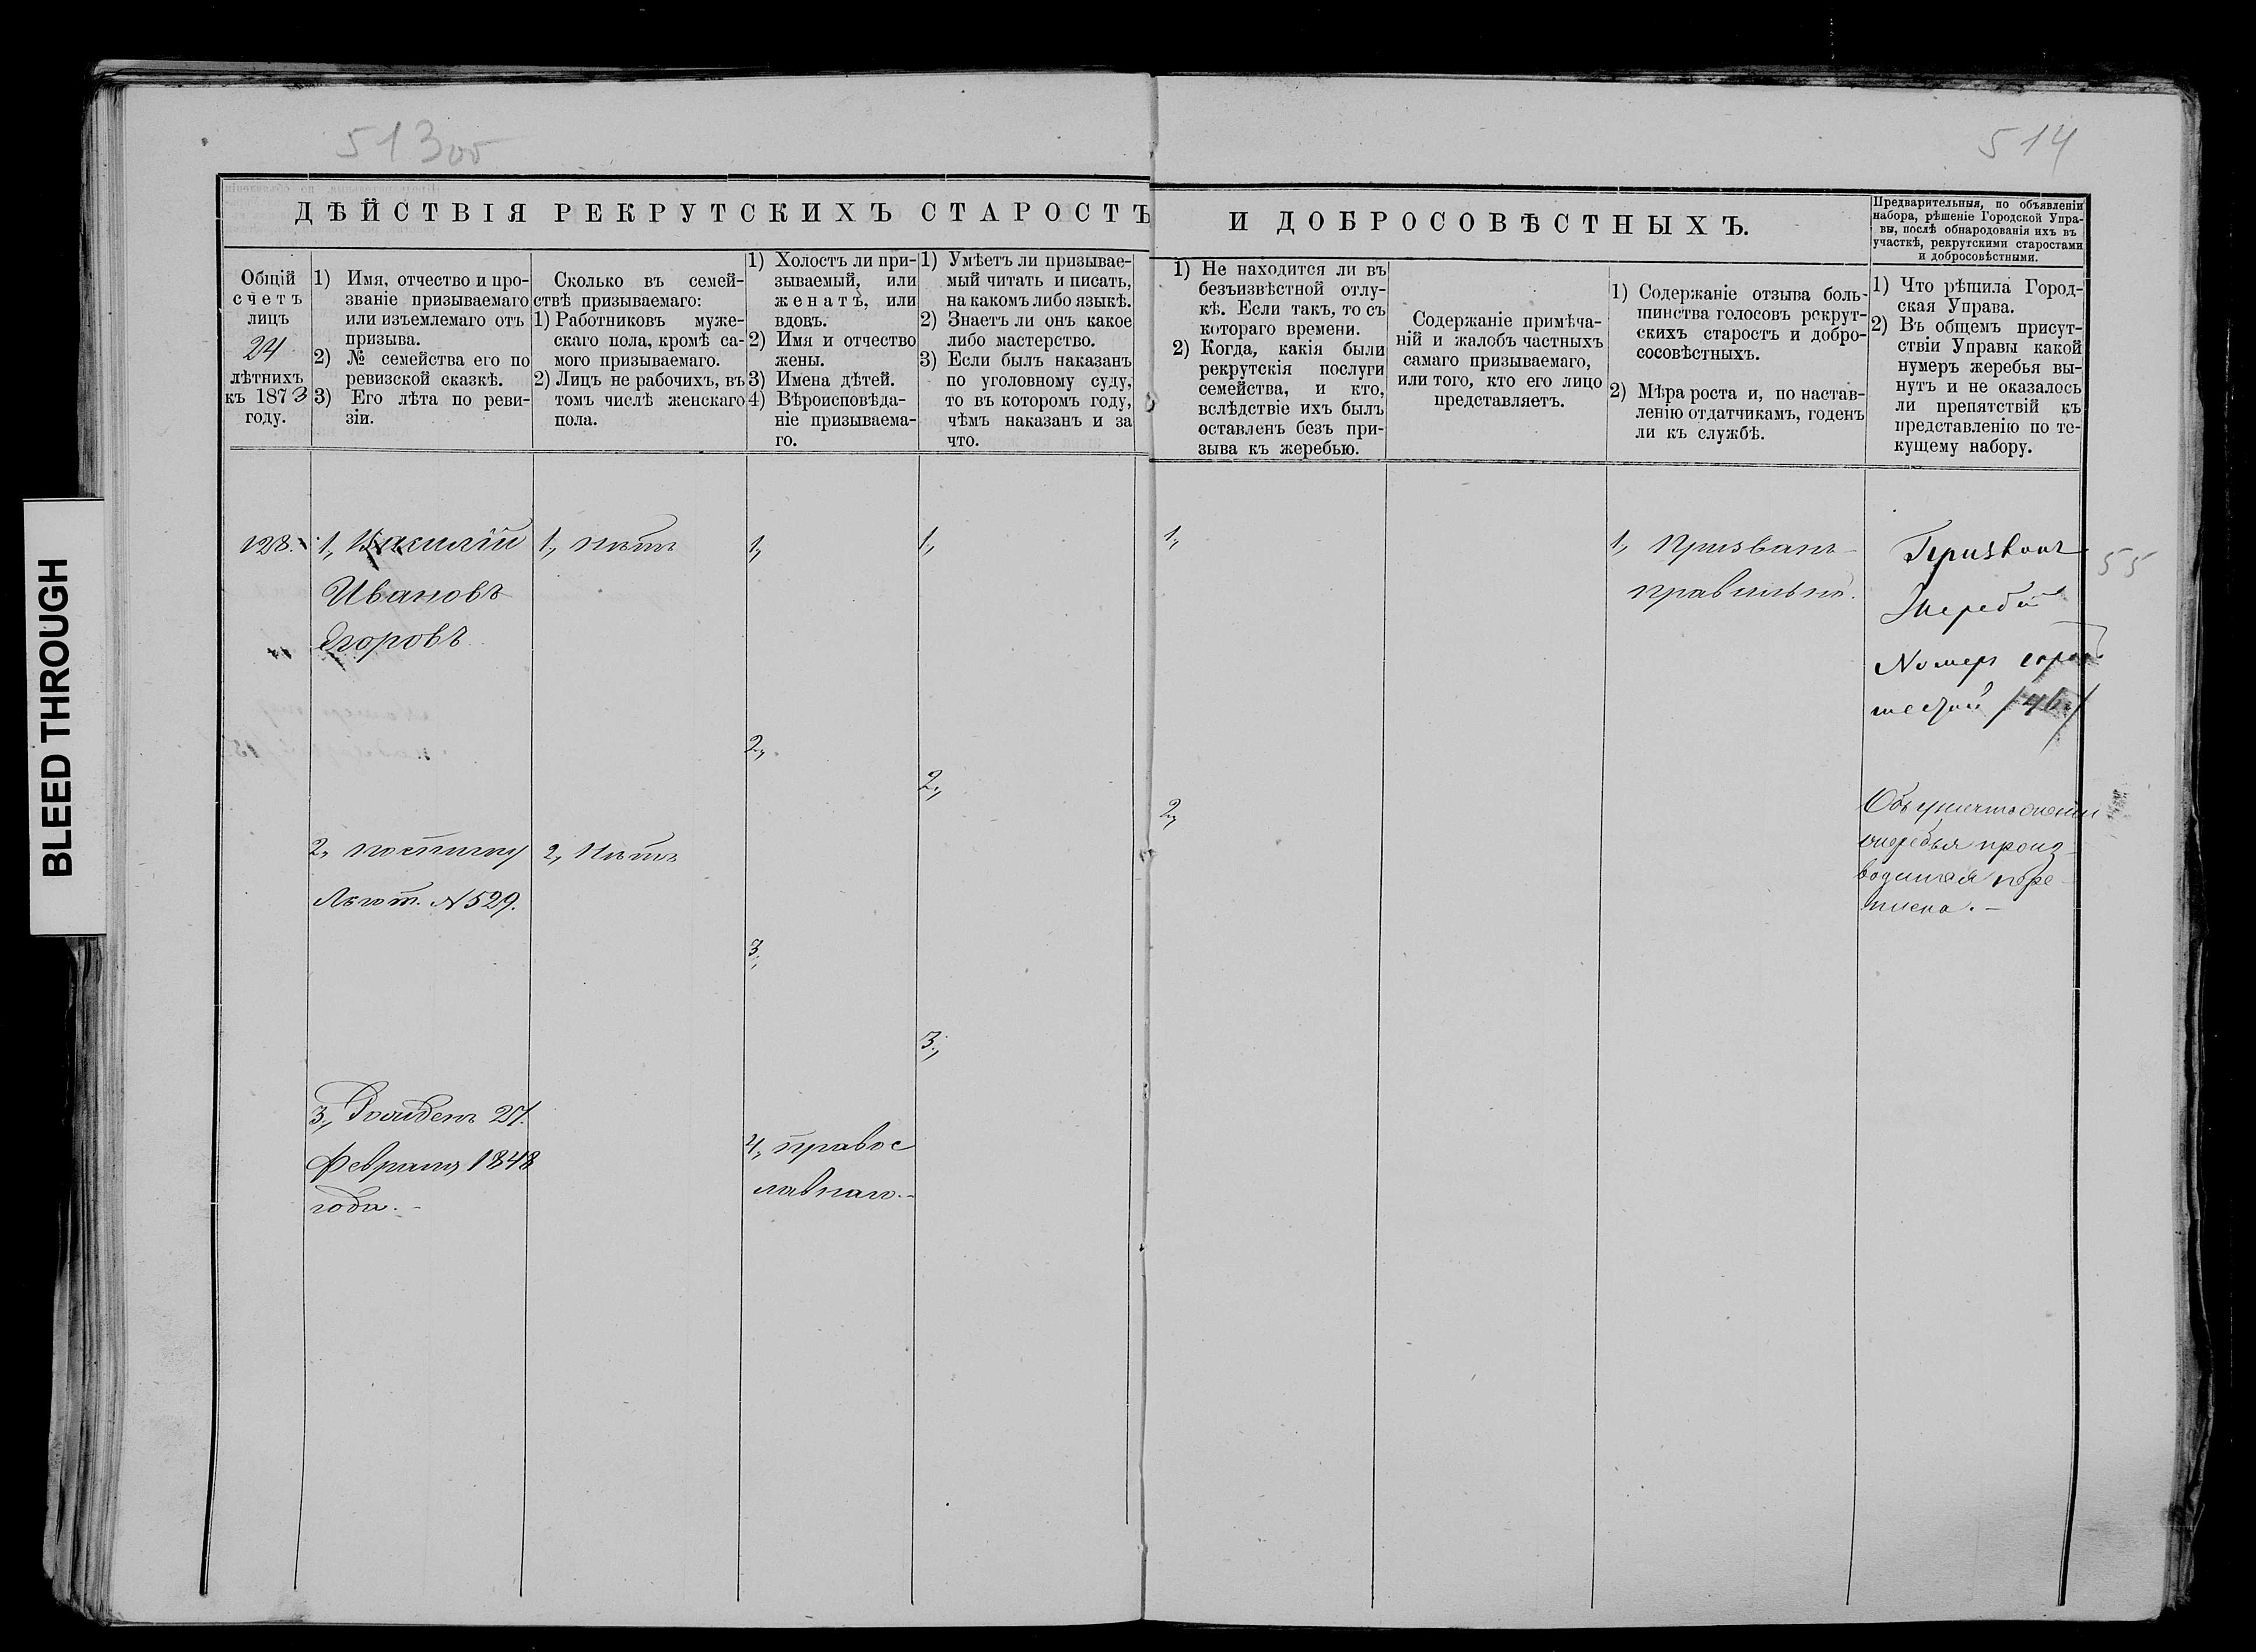 BLEED THROUGH
513об
514
ДѢЙСТВІЯ РЕКРУТСКИХЪ СТАРОСТЪ
И ДОБРОСОВѢСТНЫХЪ.
Предварительныя, по объявленіи
набора, рѣшеніе Городской Упра-
вы, послѣ обнародованія ихъ въ
участкѣ, рекрутскими старостами
и добросовѣстными.
Общій
счетъ
лицъ
24
лѣтнихъ
къ 1873
году.
1) Имя, отчество и про-
званіе призываемаго
или изъемлемаго отъ
призыва.
2) № семейства его по
ревизской сказкѣ.
3) Его лѣта по реви-
зіи.
Сколько въ семей-
ствѣ призываемаго:
1) Работниковъ муже-
скаго пола, кромѣ са-
мого призываемаго.
2) Лицъ не рабочихъ, въ
томъ числѣ женскаго
пола.
1) Холостъ ли при-
зываемый, или
женатъ, или
вдовъ.
2) Имя и отчество
жены.
3) Имена дѣтей.
4) Вѣроисповѣда-
ніе призываема-
го.
1) Умѣетъ ли призывае-
мый читать и писать,
на какомъ либо языкѣ.
2) Знаетъ ли онъ какое
либо мастерство.
3) Если былъ наказанъ
по уголовному суду,
то въ которомъ году,
чѣмъ наказанъ и за
что.
1) Не находится ли въ
безъизвѣстной отлу-
кѣ. Если такъ, то съ
котораго времени.
2) Когда, какія были
рекрутскія послуги
семейства, и кто,
вслѣдствіе ихъ былъ
оставленъ безъ при-
зыва къ жеребью.
Содержаніе примѣча-
ній и жалобъ частныхъ
самаго призываемаго,
или того, кто его лицо
представляетъ.
1) Содержаніе отзыва боль-
шинства голосовъ рекрут-
скихъ старостъ и добро-
сосовѣстныхъ.
2) Мѣра роста и, по настав-
ленію отдатчикамъ, годенъ
ли къ службѣ.
1) Что рѣшила Город-
ская Управа.
2) Въ общемъ присут-
ствіи Управы какой
нумеръ жеребья вы-
нутъ и не оказалось
ли препятствій къ
представленію по те-
кущему набору.
128.
1, Василій
Ивановъ
Егоровъ
2, посписку
Льгот. №529.
3, Рожденъ 21.
Февраля 1848
года.
1, нѣтъ
2, Нѣтъ
1,
2,
3,
4, правос
лавнаго.
1,
2,
3,
1,
2,
1, Призванъ
правильно.
Призванъ
Жребій
Номеръ сорокъ
шестой /46/
Объ уничтоженіи
жеребья произ
водится пере
писка.
55